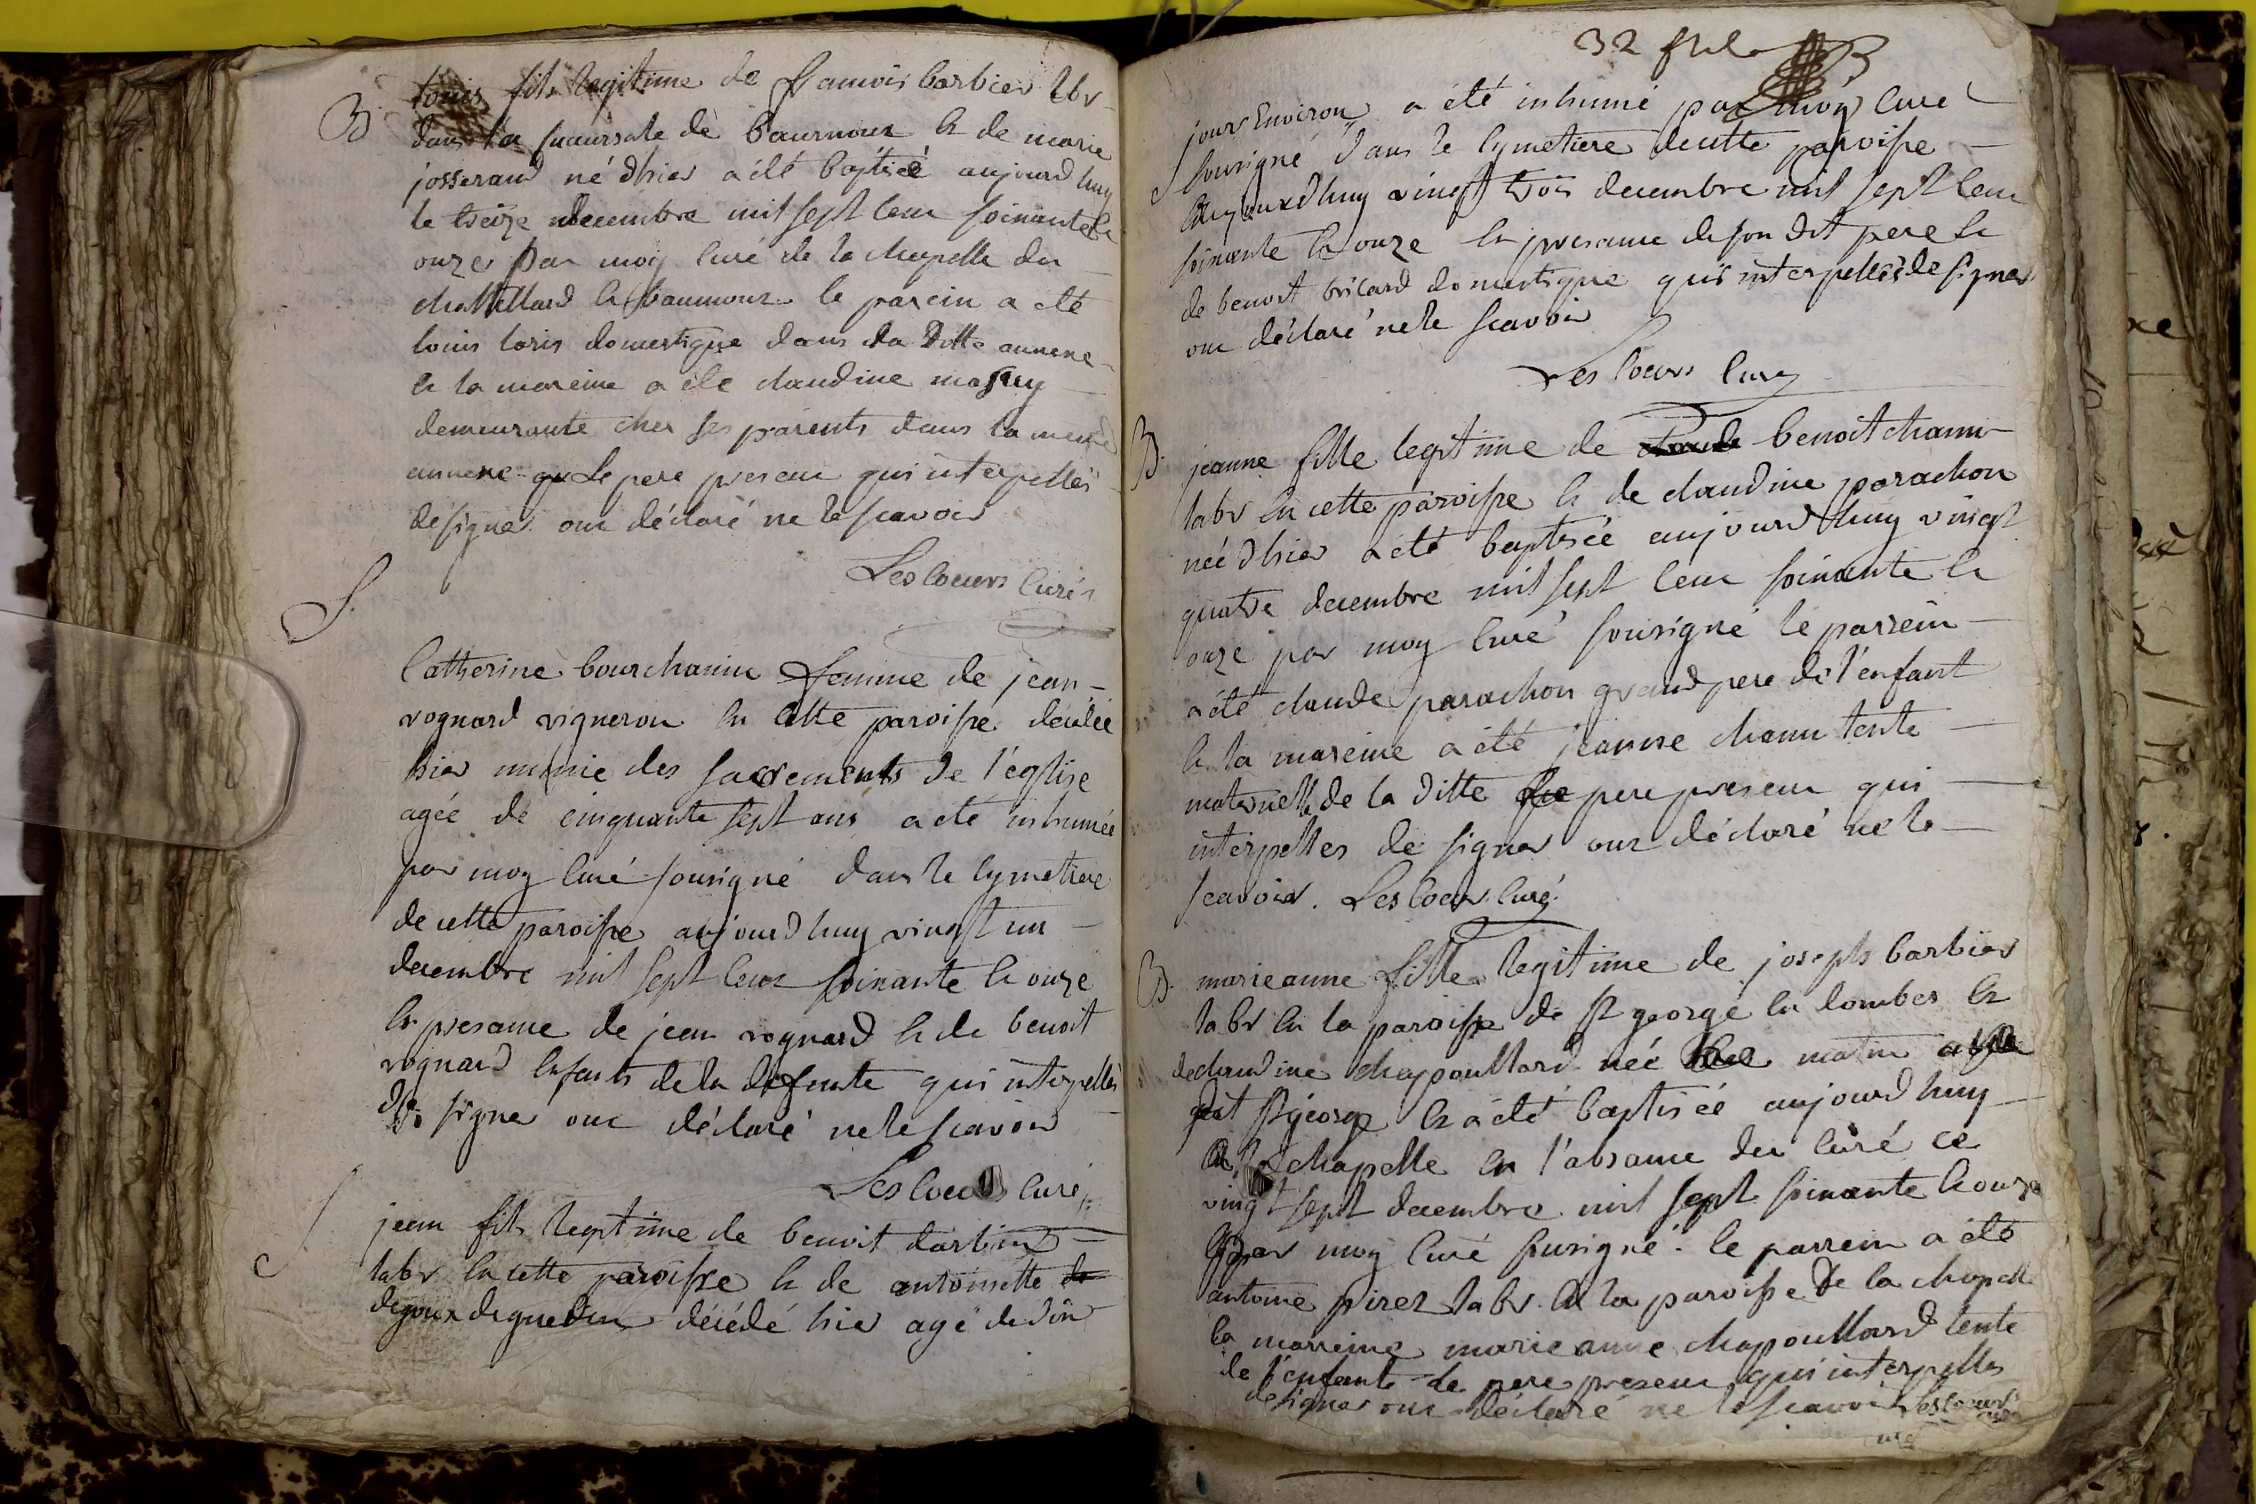 B. louis fils legitime de francois barbier lbr
dans la succursale de baumour & de marie
josserand né dhier a été baptisé aujourd huy
le treize decembre mil sept cent soixante &
onze par moy curé de la chapelle du
chattellard & baumour le parein a eté
louis loris domestique dans la ditte annexe
& la mareine a ete claudine
demeurante cher ses parents dans la meme
annexe le pere present qui interpellés
de signer ont déclaré ne le scavoir
Lescoeurs curé
S.
Catherine bourchanin femme de jean
rognard vigneron en cette paroisse décédée
hier munie des sacrements de l'église
agée de cinquante sept ans a eté inhumée
par moy curé sousigné dans le cymetiere
de cette paroisse aujourdhuy vingt un
decembre mil sept cent soixante & onze
en presance de jean rognard & de benoit
rognard enfants de la defunte qui interpellés
de signer ont déclaré ne le scavoir
Lescoeurs curé
S
jean fils legitime de benoit
labr en cette paroisse & de antoinette de
décédé hier agé de dix
32
jours environ a été inhumé par moy curé
sousigné dans le cymetiere de cette paroisse
aujourdhuy vingt trois decembre mil sept cent
soixante & onze en presance de son dit pere &
de benoit bricard domestique qui interpellés de signer
ont déclaré ne le scavoir
Lescoeurs curé
B. jeanne fille legitime de claude benoit chanu
labr en cette paroisse & de claudine parachon
née dhier a eté baptisée aujourdhuy vingt
quatre decembre mil sept cent soixante &
onze par moy curé sousigné le parrein
a été claude parachon grand pere de l'enfant
& la mareine a été jeanne chanu tente
maternelle de la ditte pere present qui
interpellés de signer ont déclaré ne le
scavoir. Lescoeurs curé
B. marieanne fille legitime de joseph barbier
labr en la paroisse de st george en dombes &
de claudine chapouillard née matin
dit st george & a été baptisée aujourdhuy
a la chapelle en l'absance du curé ce
vingt sept decembre mil sept soixante & onze
par moy curé susigné. le parrein a été
antoine pirez labr en la paroisse de la chapelle
la marreine marieanne chapouillard tente
de l'enfant le pere present qui interpellés
de signer ont déclaré ne le scavoir Lescoeurs
curé